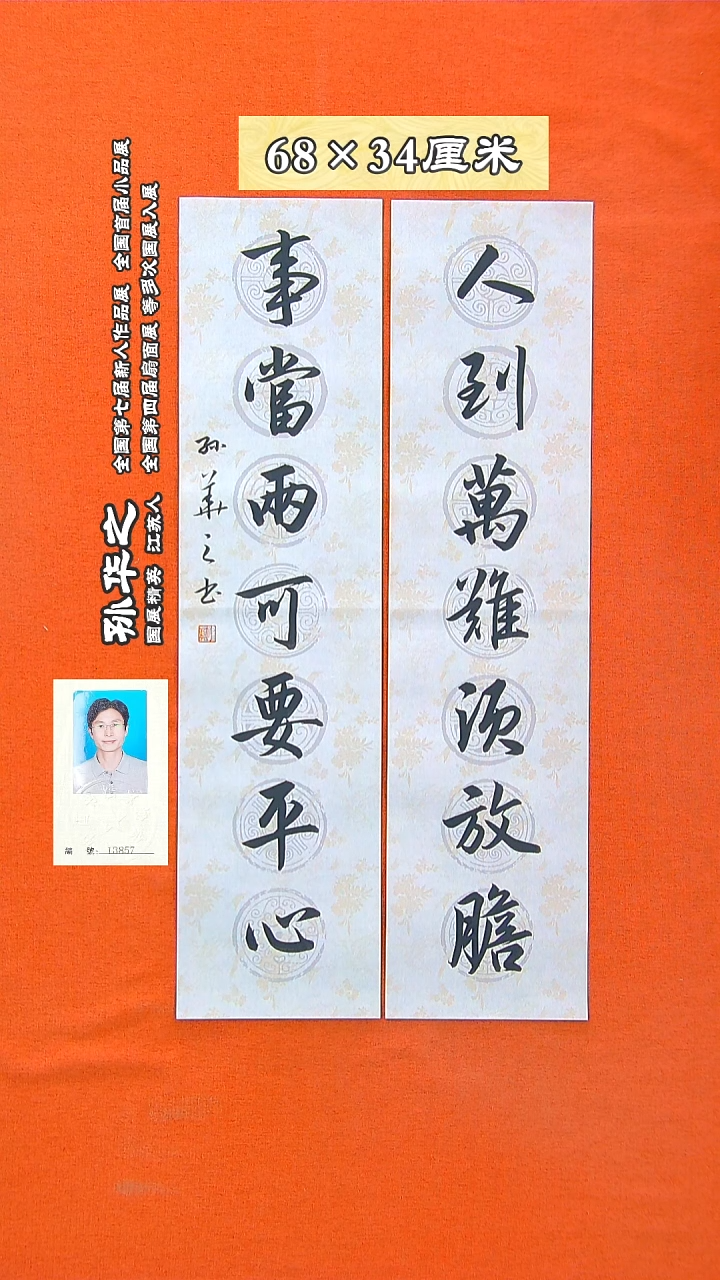 68×34厘米
人到萬難須放膽
事當兩可要平心
孫華之书
孙华之
国展精英 江苏人
全国第七届新人作品展 全国首届小品展
全国第四届扇面展 等多次国展入展
编 號: 13857